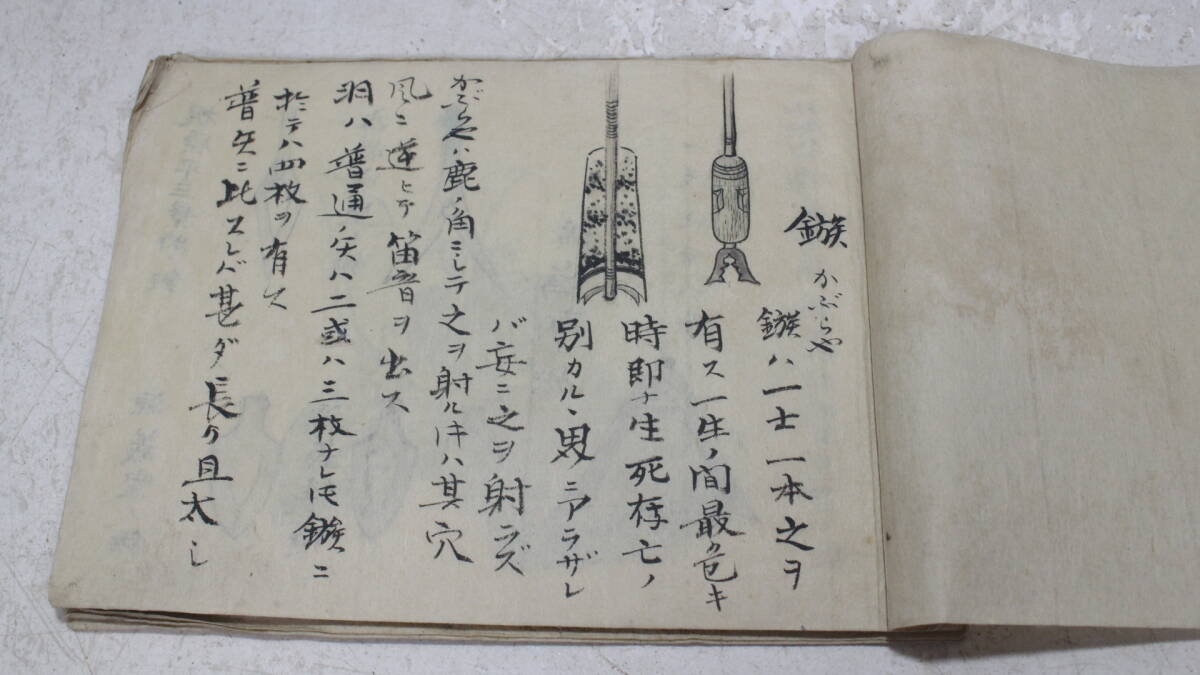 鏃
かぶらや
鏃ハ一士一本之ヲ
有ス一生ノ間最
時即チ生死存亡ノ
別カルヽ ニアラザレ
バ妄ニ之ヲ射ラズ
かぶらやハ鹿ノ角ニシテ之ヲ射ルトキハ其穴
風ニ逆ヒテ笛音ヲ出ス
羽ハ普通ノ矢ハ二或ハ三枚ナレ𪜈鏃ニ
於テハ四枚ヲ有ス
普矢ニ比スレバ甚ダ長ク且太シ